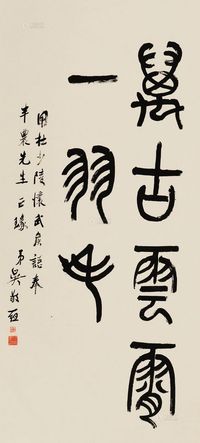 萬古雲霄
一羽毛
用杜少陵懷武侯語奉
半農先生正瑑 弟吳敬恒